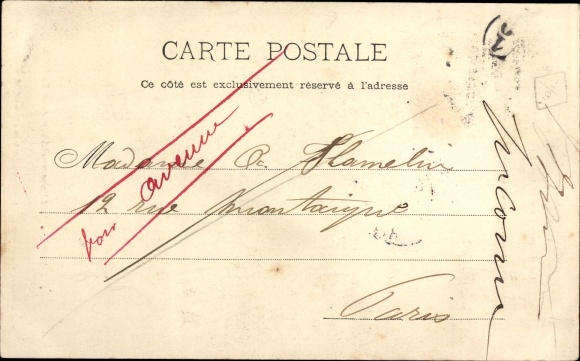 CARTE POSTALE
Ce côté est exclusivement réservé à l'adresse
Madame A. Hamelin
12 rue Montaigne
Paris
voir avenue
Inconnu